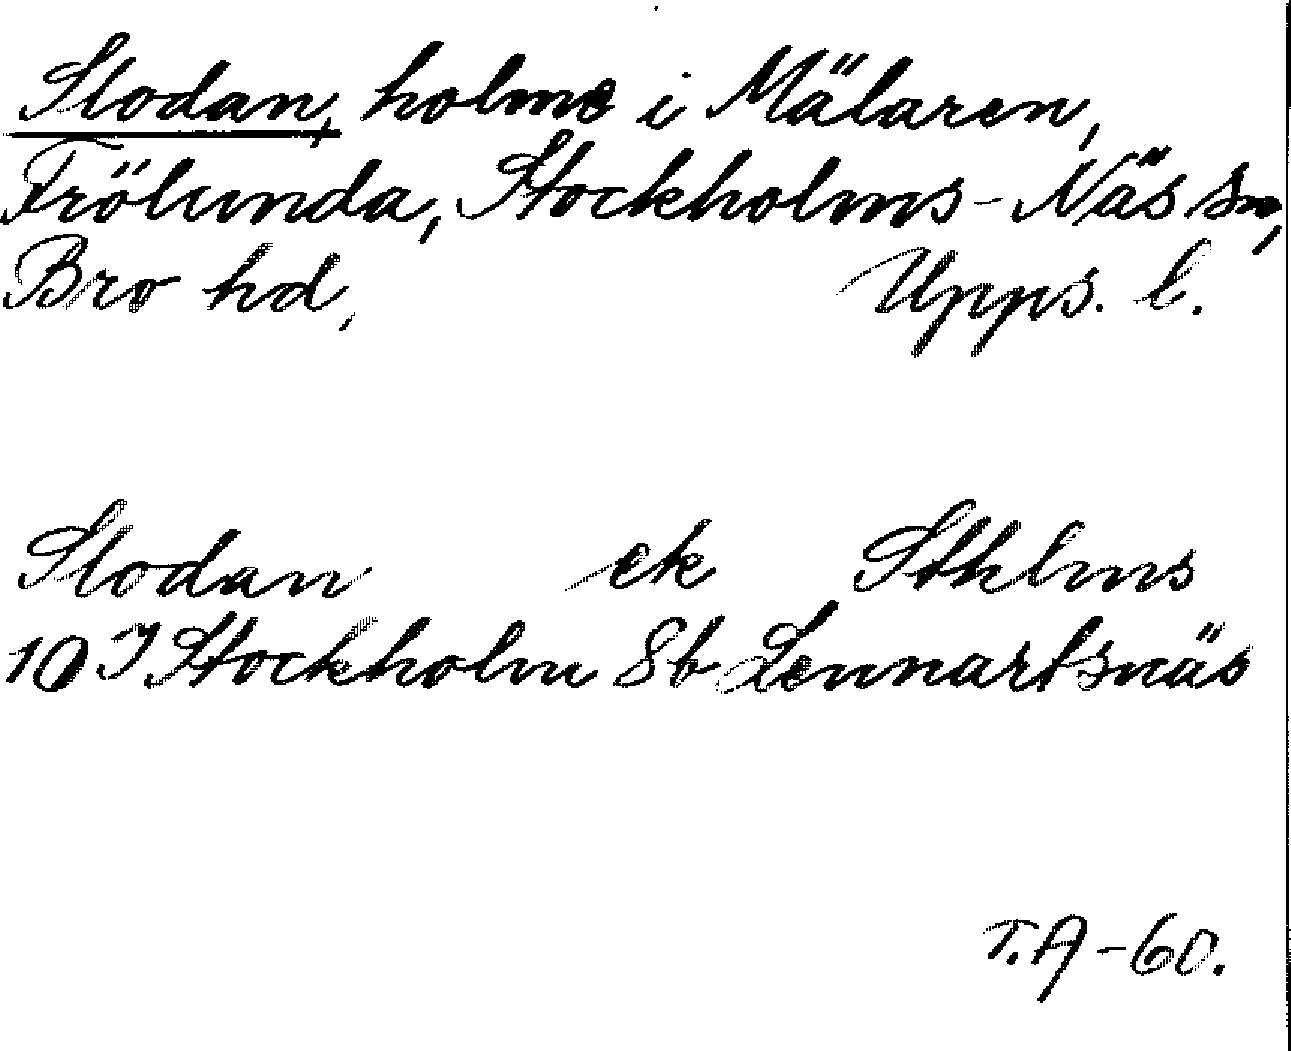 Slodan, holme i Mälaren,
Frölunda, Stockholms-Näs sn,
Bro hd, Upps. l.
Slodan ek Sthlms
10 I Stockholm 8b Lennartsnäs
T.A-60.